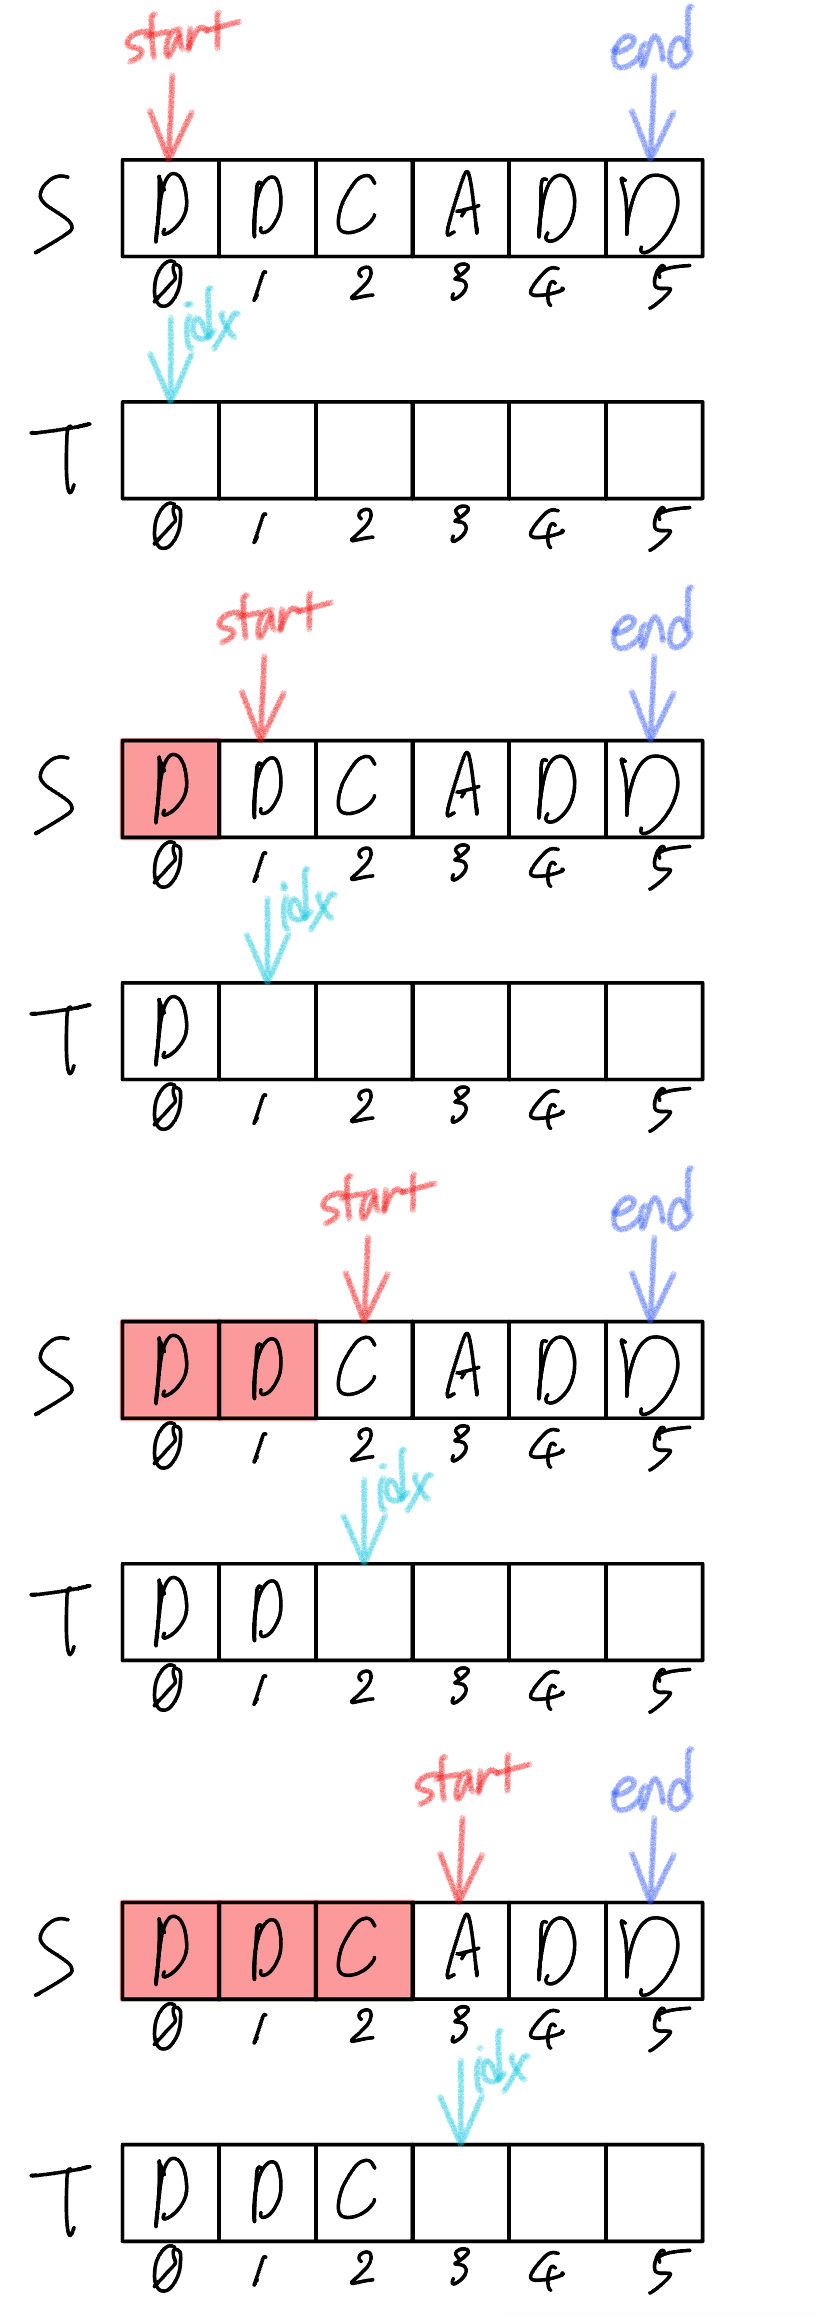 start end
S D D C A D D
0 1 2 3 4 5
idx
T
0 1 2 3 4 5
start end
S D D C A D D
0 1 2 3 4 5
idx
T D
0 1 2 3 4 5
start end
S D D C A D D
0 1 2 3 4 5
idx
T D D
0 1 2 3 4 5
start end
S D D C A D D
0 1 2 3 4 5
idx
T D D C
0 1 2 3 4 5